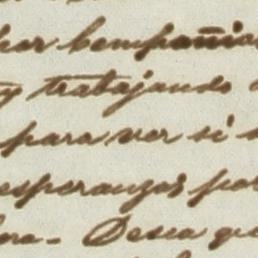 por compañia
y trabajando
para ver si
esperanzas po
ra- Desea qu